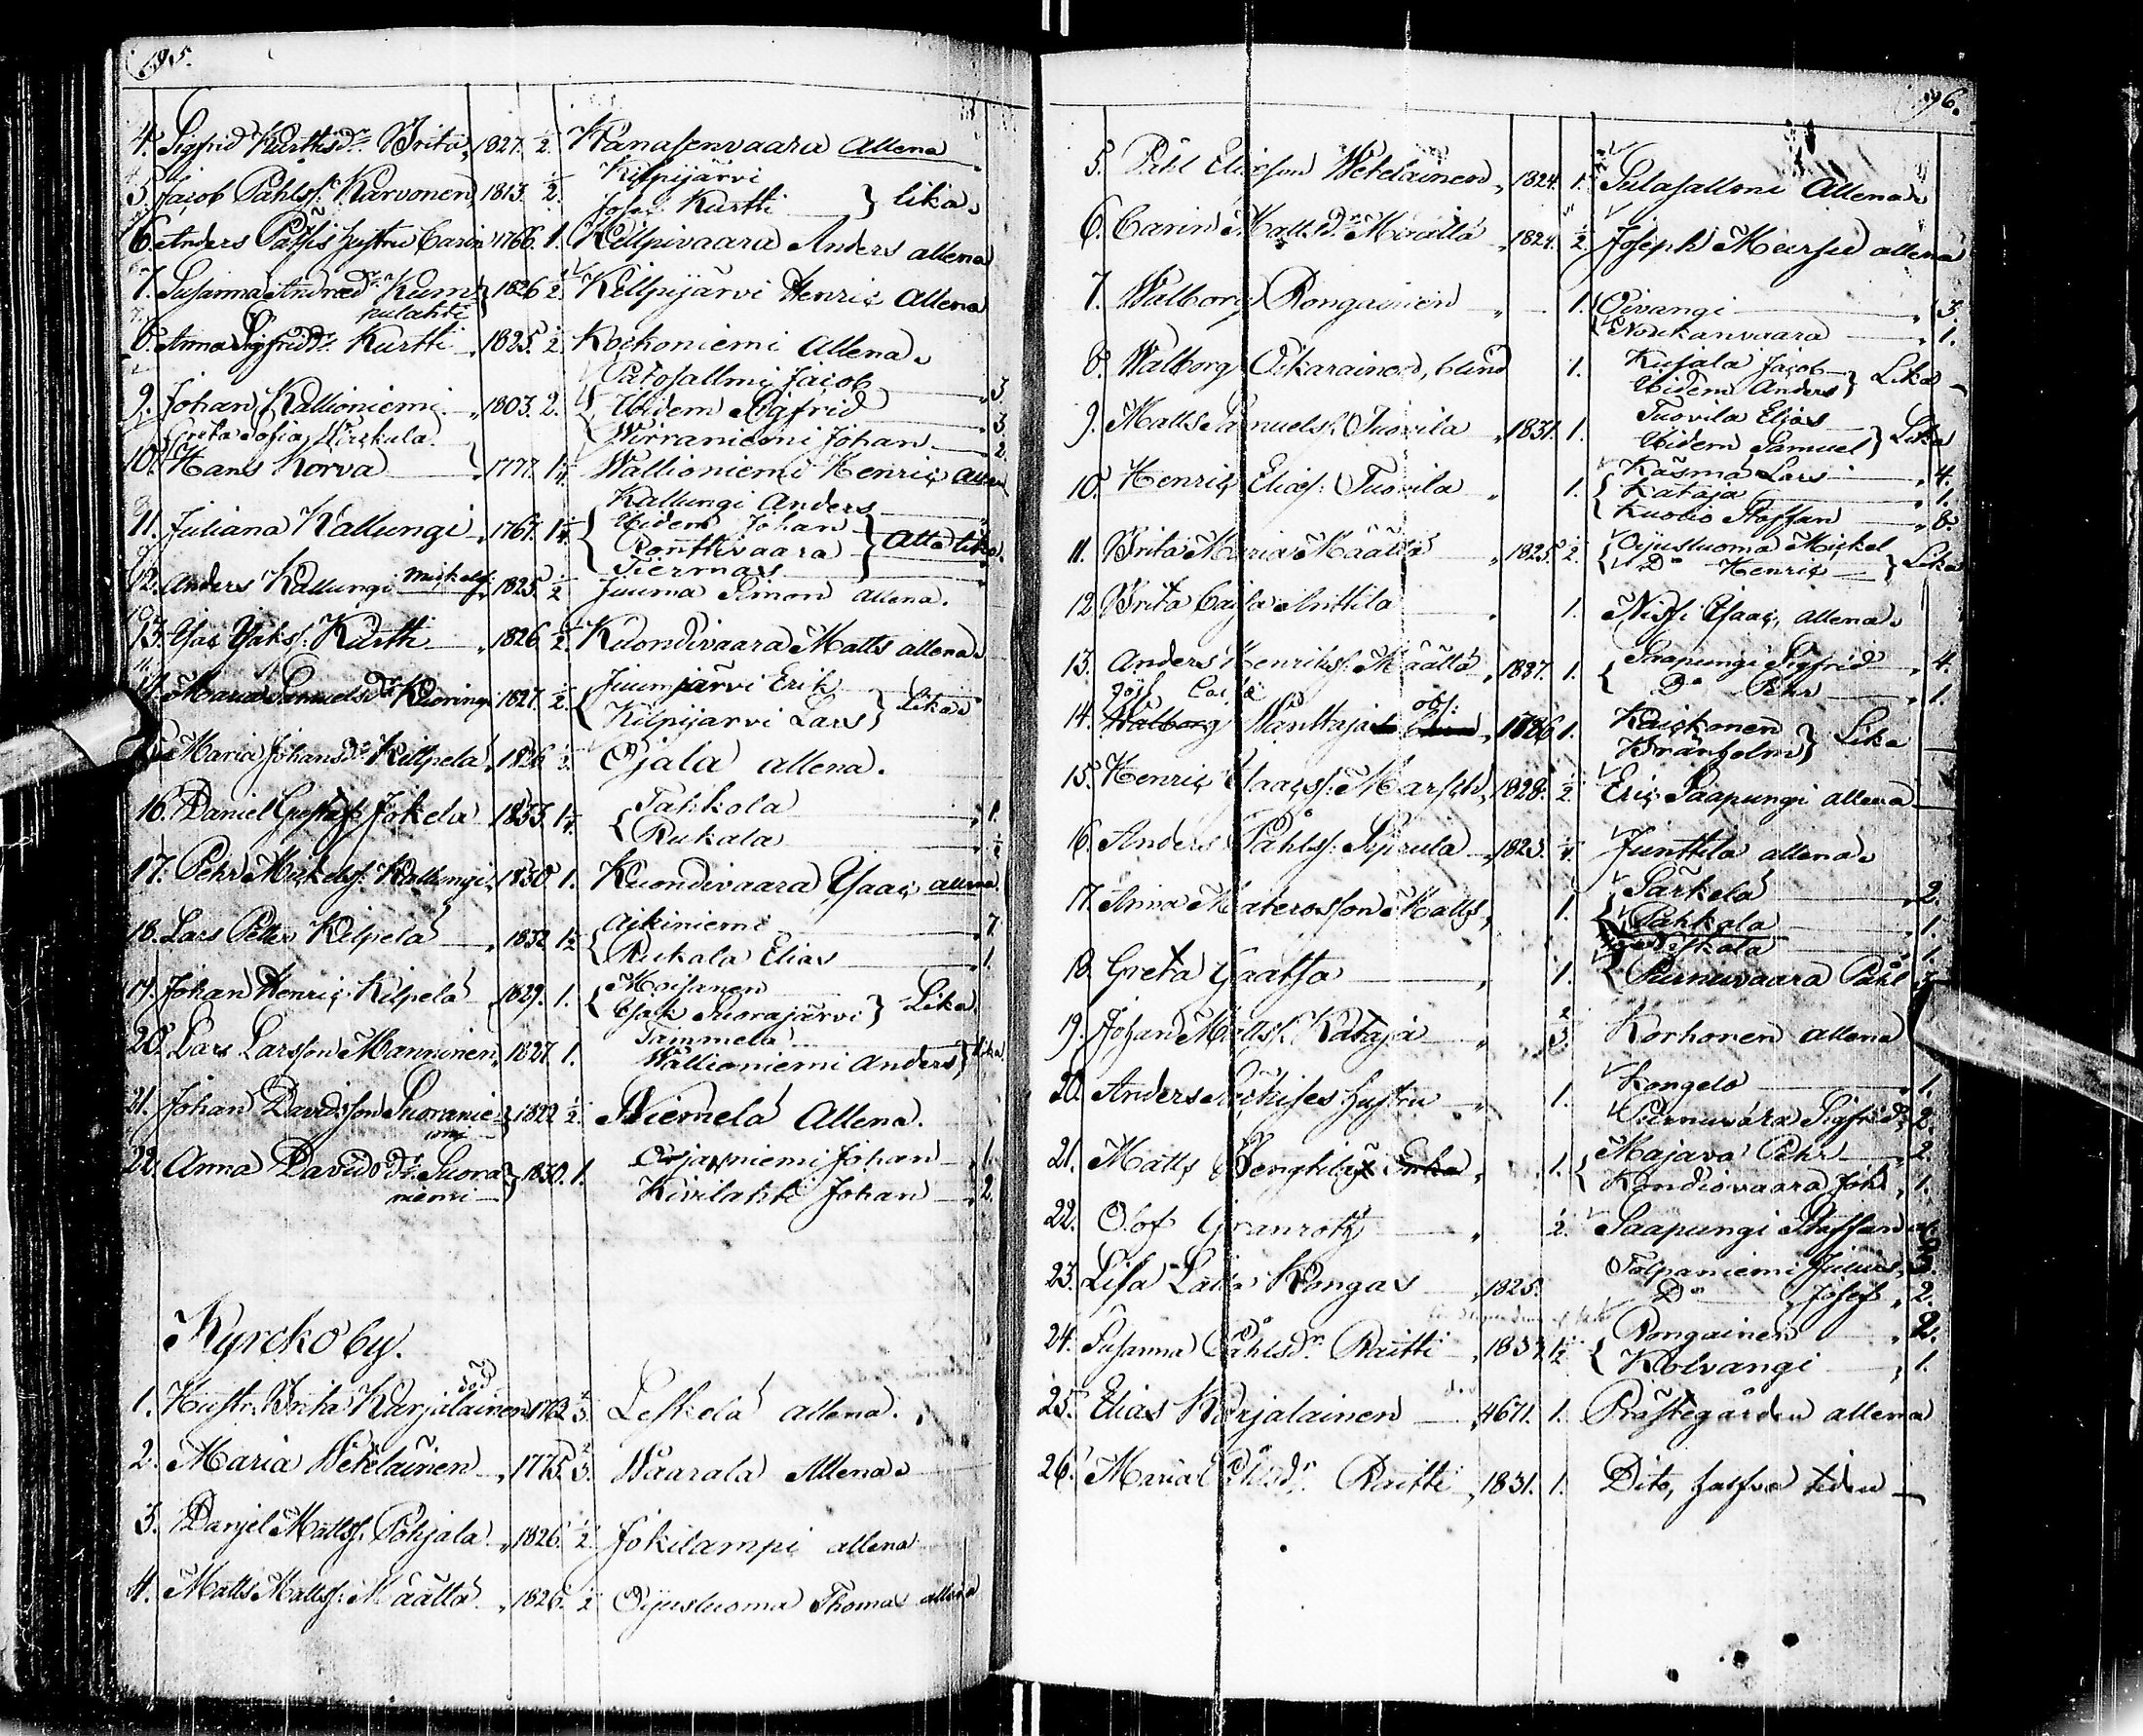 195.
4. Sigfrid Kurttisdr Brita, 1827. ½. Kanasenvaara Allena
5. Jacob Påhlss. Karvonen, 1813. ½. Kilpijärvi
Josep. Kurtti } lika
6. Anders hustru Carin 1766. 1. Kellpivaara Anders allena
7. Susanna Andrædr Kum= 1826 ½. Killpijärvi Henric Allena
pulahti
8. Anna Sigfriddr Kurtti 1825. ½. Kockoniemi Allena
9. Johan Kallioniemi 1803. 2. { Patosallmi Jacob 3.
Ibidem Sigfrid 3.
Wirraniemi Johan 2.
Greta Sofia
10. Hans Korva 1777. 1¼ Wallioniemi Henric allena
11. Juliana Kallungi 1767. 1¼ { Kallungi Anders
Ibidem Johan
Ronttivaara
Tiermas } Alla lika
12. Anders Kallungi Mickelss. 1825. ½ Juuma Simon allena.
13. Isac Isakss. Kurtti 1826. ½. Kuondivaara Matts allena
14. Maria Samuelsdr Kuoringi 1827. ½. { Juumjärvi Erik
Kilpijärvi Lars } Lika
15. Maria Johansdr Killpelä 1826 Ojala allena.
16. Daniel Gustafs. Jokela 1833. 1¼ { Tahkola 1.
Rukala ½
17. Pehr Mickelss. Kallungi, 1830. 1. Kuondivaara Isaac allena.
18. Lars Petter Kilpelä 1832 1½ { Aikiniemi 7
Rukala Elias 1.
19. Johan Henric Kilpelä 1829. 1. { Moisanen
Isak Suorajärvi } Lika
20. Lars Larsson Manninen, 1827. 1. Tammela
Wallioniemi Anders } lika
21. Johan Davidsson Suoranie= 1822 ½. Niemelä Allena.
mi
22. Anna Davidsdr Suora 1830. 1. Orjasniemi Johan 1.
niemi Kivilahti Johan 2.
Kyrckoby.
död
1. Hustr. Brita Karjalainen 1773 ⅔. Leskelä allena.
2. Maria Wetelainen 1775. ⅔. Waarala Allena
3. Danjel Mattss. Pohjala 1826. ½. Jokilampi allena
4. Matts Mattss. Määttä 1826. ½ Oijusluoma Thomas allena
196.
5. Påhl Eliasson Wetelainen, 1824. 1. Sulasallmi Allena
6. Carin Mattsdr Määttä 1824. ½. Joseph Mursu allena
7. Walborg Rongainen 1. { Oivangi 3.
Nuikanvaara 1.
8. Walborg Oikarainen, blind 1. Kujala Jacob
Ibidem Anders } Lika
9. Matts Samuelss. Tuovila 1831. 1. Tuovila Elias
Ibidem Samuel } Lika
10. Henric Eliæs. Tuovila 1. { Käsmä Lars 4.
Kataja 1.
Kuobio Staffan 8.
11. Brita Maria Määttä 1825. ½. { Oijusluoma Mickel
Do Henric } Lika
12. Brita Caisa Anttila 1. Nissi Isaac, allena
13. Anders Henrikss. Määttä 1837. 1. { Saapungi Sigfrid 4.
Do Pehr 1.
obs:
14. Walborg Mänttäjä 1786 1. Kaickonen
Kranholm } Lika
15. Henric Isaacss. Marsch, 1828. ½. Eric Saapungi allena
16. Anders Påhlss. Sipuila 1823. ¼. Junttila allena
17. Anna Materosson Matts, 1. { Särkelä 2.
Pahkala 1.
1.
18. Greta Gaatta 1. Purnuvaara Påhl
19. Johan Mattss. Kataja ⅔ Korhonen allena
20. Anders hustru 1. Kongelo 1.
Purnuvara Sigfrid 2.
21. Matts Enka, 1. { Majava Pehr 2.
Kondiovaara Joh. 1.
22. Olof Granroth ½. Saapungi Staffan
23. Lisa Lasse Kongas 1825. Talpaniemi Julius, 3.
Do Josef 2.
24. Susanna Påhlsdr. Raitti 1837 1½ { Rongainen 2.
Kolvangi 1.
25. Elias Karjalainen 1. Prästegården allena
26. Maria Påhlsdr. Raitti 1831. 1. Dito, halfva tiden